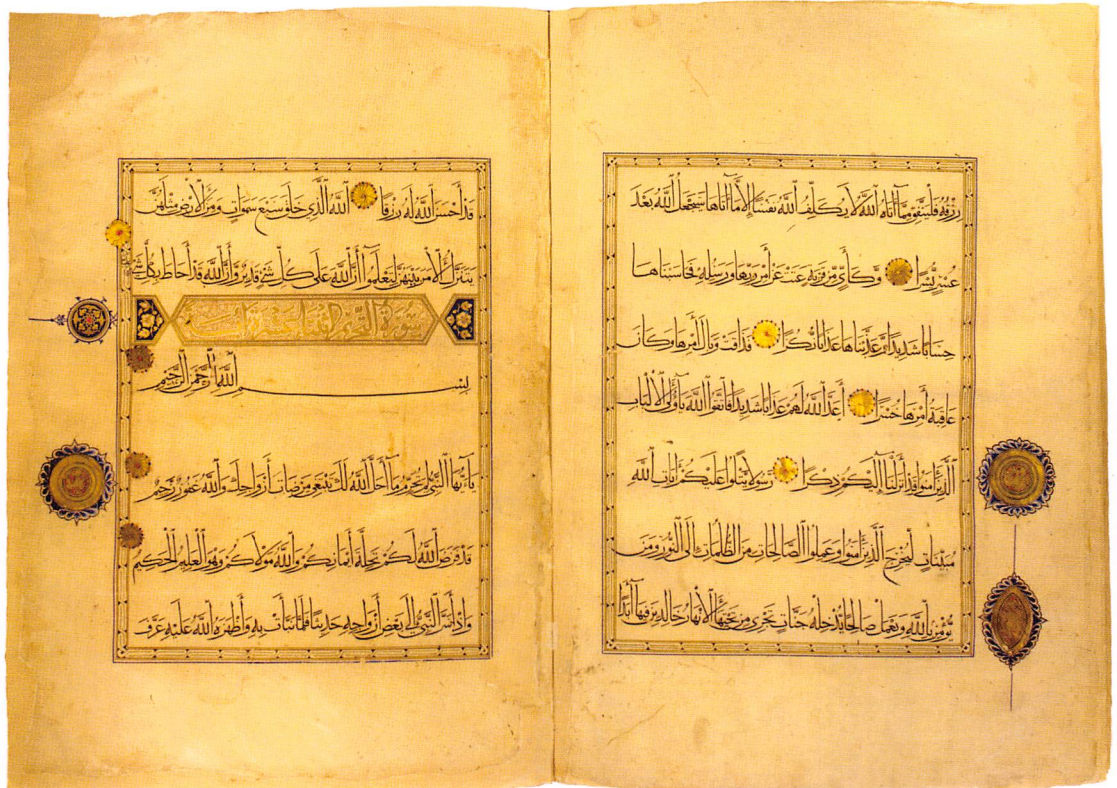 رزقه فلينفق مما آتاه الله لا يكلف الله نفسا إلا ما آتاها سيجعل الله بعد
عسر يسرا وكأين من قرية عتت عن أمر ربها ورسله فحاسبناها
حسابا شديدا وعذبناها عذابا نكرا فذاقت وبال أمرها وكان
عاقبة أمرها خسرا أعد الله لهم عذابا شديدا فاتقوا الله يا أولي الألباب
الذين آمنوا قد أنزل الله إليكم ذكرا رسولا يتلوا عليكم آيات الله
مبينات ليخرج الذين آمنوا وعملوا الصالحات من الظلمات إلى النور ومن
يؤمن بالله ويعمل صالحا يدخله جنات تجري من تحتها الأنهار خالدين فيها أبدا
قد أحسن الله له رزقا الله الذي خلق سبع سموات ومن الأرض مثلهن
يتنزل الأمر بينهن لتعلموا أن الله على كل شيء قدير وأن الله قد أحاط بكل شيء
سورة التحريم اثنتا عشرة
بسم الله الرحمن الرحيم
يا أيها النبي لم تحرم ما أحل الله لك تبتغي مرضات أزواجك والله غفور رحيم
قد فرض الله لكم تحلة أيمانكم والله مولاكم وهو العليم الحكيم
وإذ أسر النبي إلى بعض أزواجه حديثا فلما نبأت به وأظهره الله عليه عرف